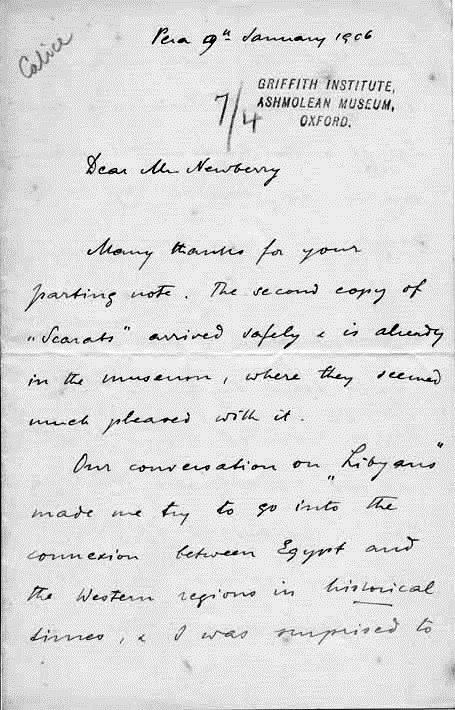 Calice
Pera 9th January 1906
GRIFFITH INSTITUTE,
ASHMOLEAN MUSEUM,
OXFORD.
7/4
Dear Mr Newberry
Many thanks for your
parting note. The second copy of
„Scarabs" arrived safely & is already
in the museum, where they seemed
much pleased with it.
Our conversation on „Libyans"
made me try to go into the
connexion between Egypt and
the Western regions in historical
times, & I was surprised to